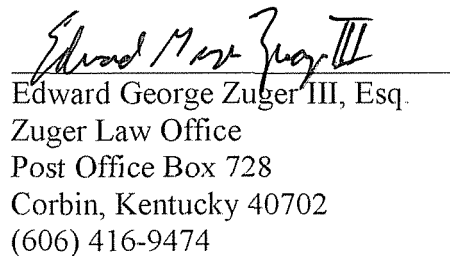 Edward George Zuger III
Edward George Zuger III, Esq.
Zuger Law Office
Post Office Box 728
Corbin, Kentucky 40702
(606) 416-9474